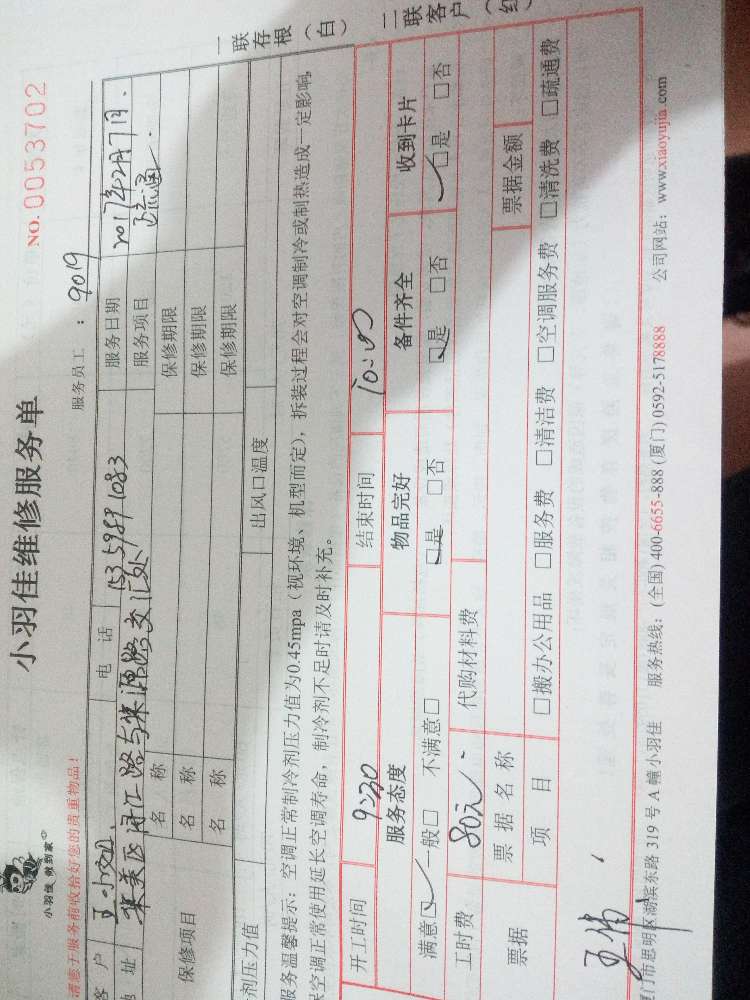 小羽佳 做到家
小羽佳维修服务单
NO.0053702
请您于服务前收拾好您的贵重物品!
服务员工 : 9019
客 户 王小姐 电 话 15359891083 服务日期 2017年2月7日
地 址 集美区浒江路与集源路交汇处 服务项目 疏通
保修项目 名 称 保修期限
名 称 保修期限
名 称 保修期限
剂压力值 出风口温度
服务温馨提示: 空调正常制冷剂压力值为0.45mpa(视环境、机型而定), 拆装过程会对空调制冷或制热造成一定影响,
保空调正常使用延长空调寿命, 制冷剂不足时请及时补充。
开工时间 9:30 结束时间 10:00
服务态度 物品完好 备件齐全 收到卡片
满意□ 一般□ 不满意□ □是 □否 □是 □否 □是 □否
工时费 80元 代购材料费
票据 票 据 名 称 票据金额
项 目 □搬办公用品 □服务费 □清洁费 □空调服务费 □清洗费 □疏通费
王伟
厦门市思明区湖滨东路 319 号 A 幢小羽佳 服务热线: (全国) 400-6655-888 (厦门) 0592-5178888 公司网站: www.xiaoyujia.com
一联存根(白)
二联客户(红